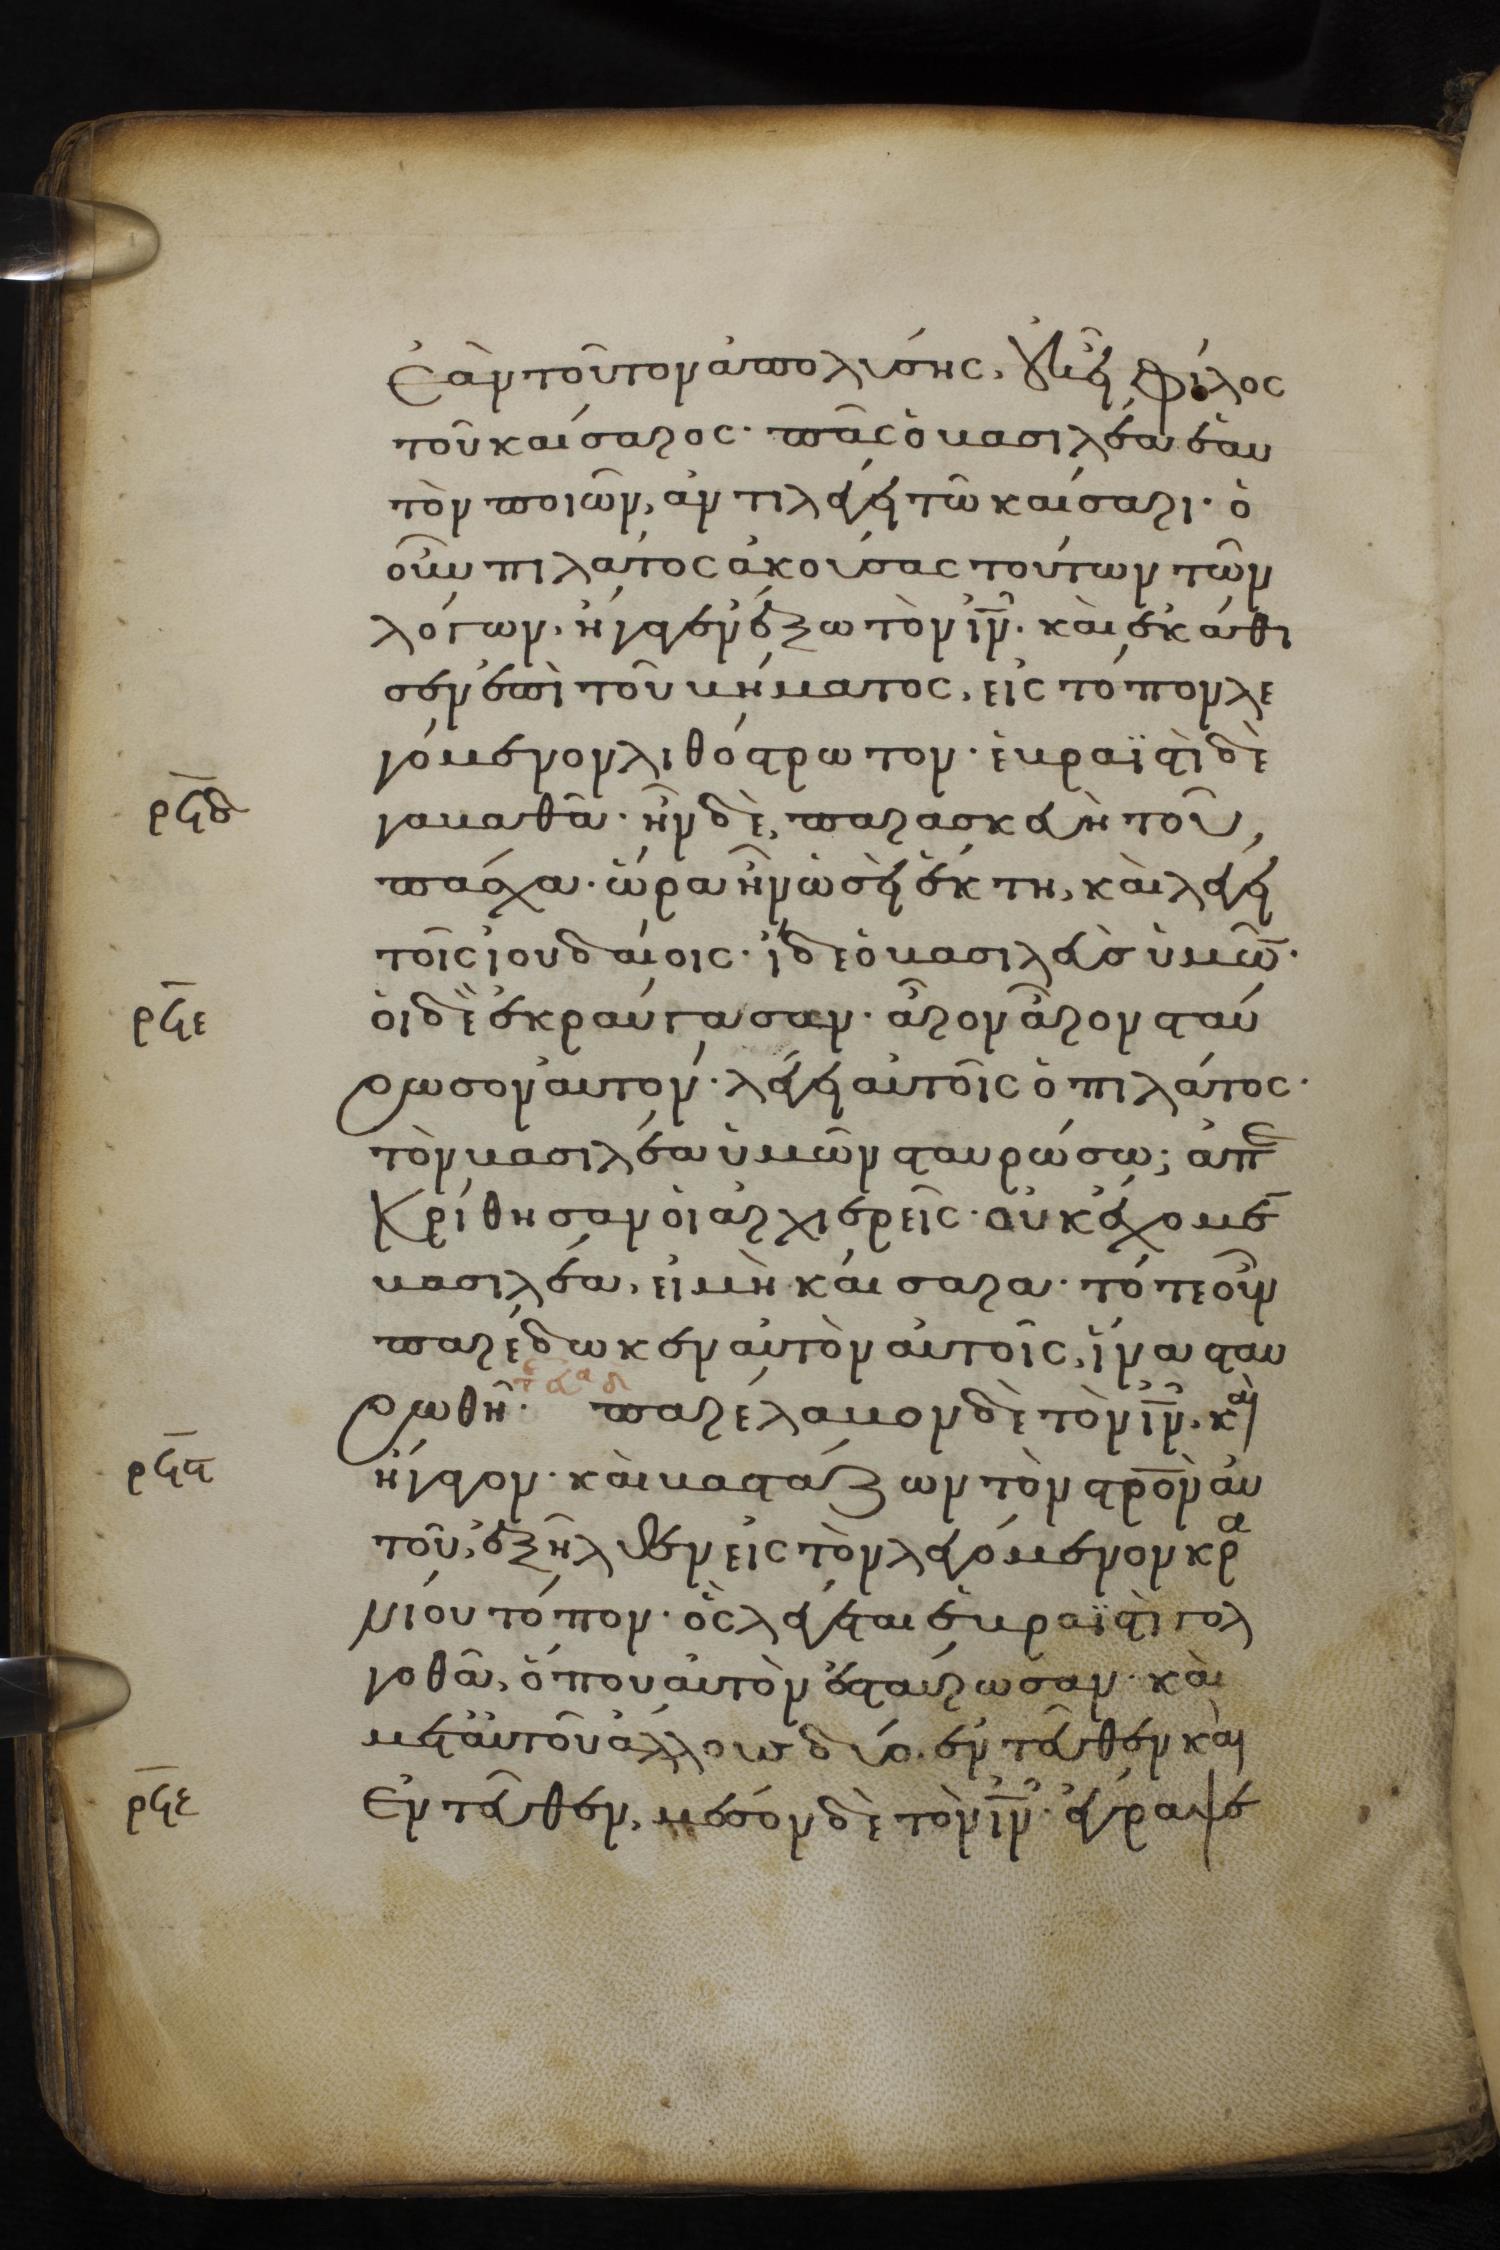 ἐὰν τοῦτον ἀπολύσης, οὐκ εἶ φίλος
τοῦ καίσαρος· πᾶς ὁ βασιλέα ἑαυ
τὸν ποιῶν, ἀντιλέγει τῶ καίσαρι· ὁ
οὖν πιλάτος ἀκούσας τούτων τῶν
λόγων, ἤγαγεν ἔξω τὸν ἰν̅· καὶ ἐκάθι
σεν ἐπὶ τοῦ βήματος, εἰς τόπον λε
γόμενον λιθόστρωτον· ἑβραϊστὶ δὲ
ρϟδ
γαβαθᾶ· ἦν δὲ, παρασκευὴ τοῦ
πάσχα· ὥρα ἦν ὡσεὶ ἕκτη, καὶ λέγει
τοῖς ἰουδαίοις· ἴδε ὁ βασιλεὺς ὑμῶ̅·
ρϟε
οἱ δὲ ἐκραύγασαν· ἆρον ἆρον σταύ
ρωσον αὐτόν· λέγει αὐτοῖς ὁ πιλάτος·
τὸν βασιλέα ὑμῶν σταυρώσω; ἀπε
κρίθησαν οἱ ἀρχιερεῖς· οὐκ ἔχομε̅
βασιλέα, εἰ μὴ καίσαρα· τότε οὖν
παρέδωκεν αὐτὸν αὐτοῖς, ἵνα σταυ
ρωθῆ· παρέλαβον δὲ τὸν ἰν̅· καὶ
ρϟϛ
ἤγαγον· καὶ βαστάζων τὸν στρο̅ν αὐ
τοῦ, ἐξῆλθεν εἰς τὸν λεγόμενον κρα
νίου τόπον· ὃς λέγεται ἑβραϊστὶ γολ
γοθᾶ, ὅπου αὐτὸν ἐσταύρωσαν· καὶ
μετ' αὐτοῦ ἄλλους δύο. ἐντεῦθεν καὶ
ρϟζ
ἐντεῦθεν, μέσον δὲ τὸν ἰν̅· ἔγραψε